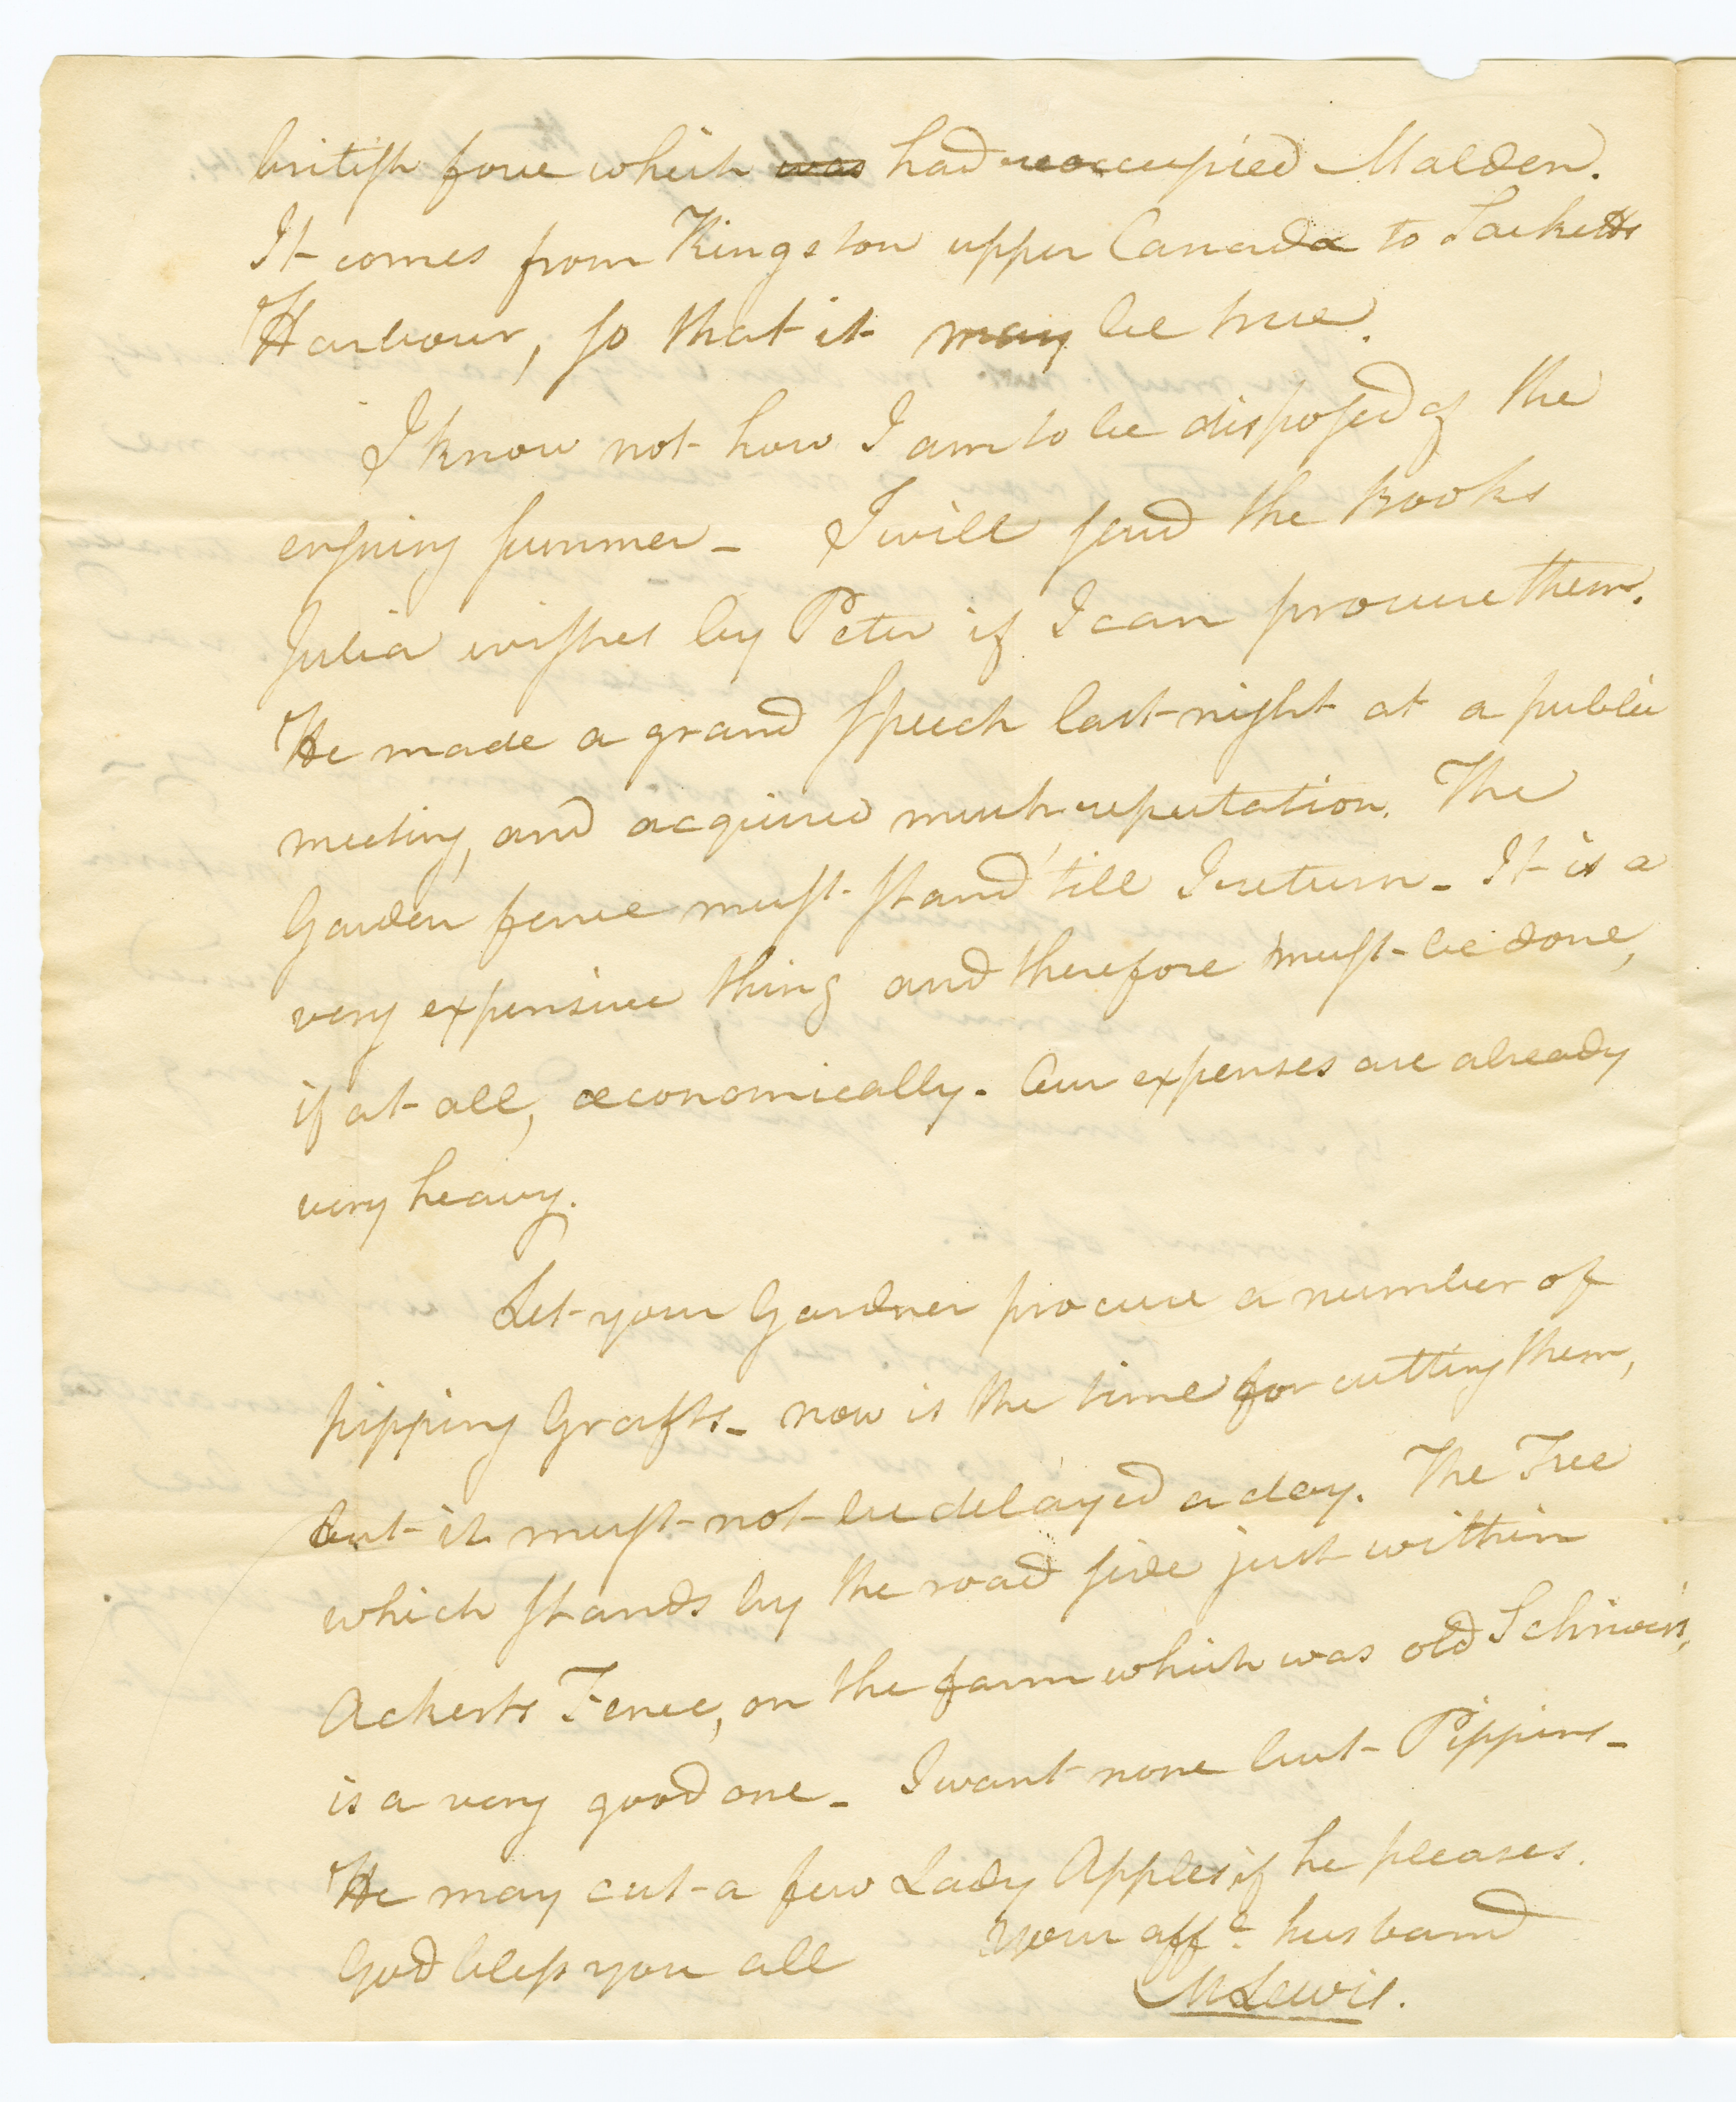 british force which was had reoccupied Malden.
It comes from Kingston upper Canada to Sacketts
Harbour, so that it may be true.
I know not how I am to be disposed of the
ensuing summer – I will send the Books
Julia wishes by Peter if I can procure them.
He made a grand speech last night at a public
meeting, and acquired much reputation. The
Garden fence must stand till I return – It is a
very expensive thing and therefore must be done,
if at all, œconomically. Our expenses are already
very heavy.
Let your Gardner procure a number of
pipping Grafts – now is the time for cutting them,
but it must not be delayed a day. The Tree
which stands by the road side just within
Ackerts Fence, on the farm which was old
is a very good one – I want none but Pippins –
He may cut a few Lady Apples if he pleases.
God bless you all your affe. husband
M Lewis.